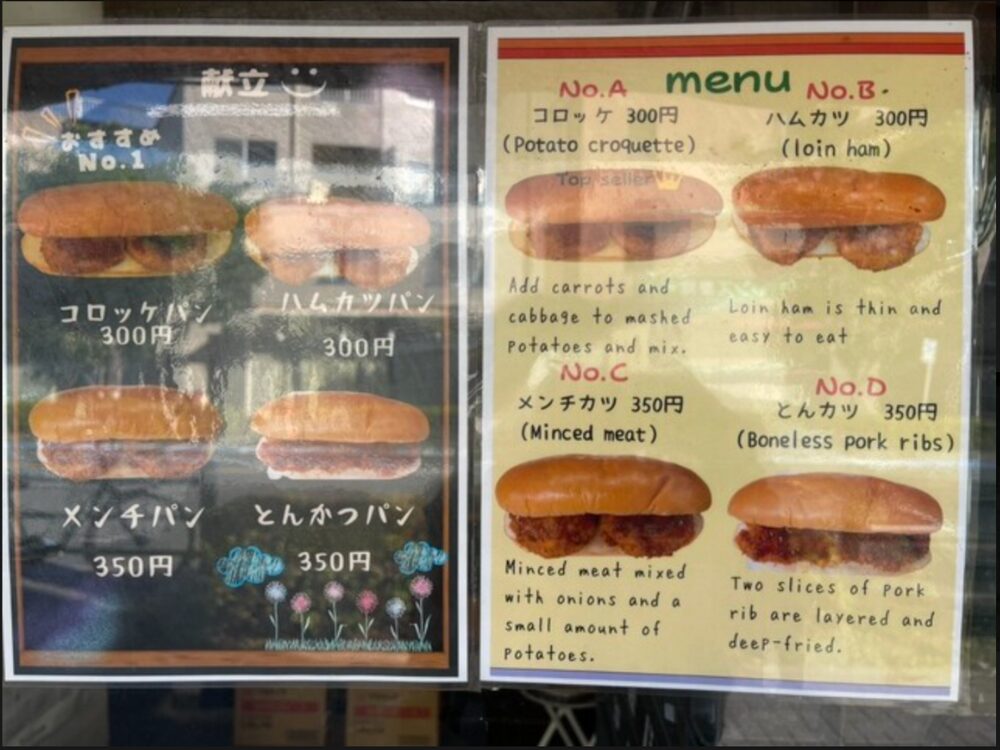 献立
おすすめ
No.1
コロッケパン
300円
ハムカツパン
300円
メンチパン
350円
とんかつパン
350円
menu
No.A
コロッケ 300円
(Potato croquette)
Top seller
Add carrots and
cabbage to mashed
potatoes and mix.
No.B
ハムカツ 300円
(loin ham)
Loin ham is thin and
easy to eat
No.C
メンチカツ 350円
(Minced meat)
Minced meat mixed
with onions and a
small amount of
potatoes.
No.D
とんカツ 350円
(Boneless pork ribs)
Two slices of pork
rib are layered and
deep-fried.